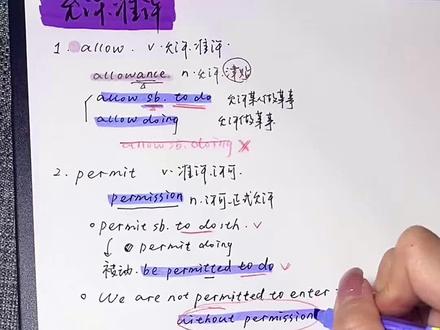 允许.准许
1. allow. v.允许.准许.
allowance n.允许.津贴
allow sb. to do 允许某人做某事
allow doing 允许做某事
allow sb. doing ×
2. permit v.准许.许可.
permission n.许可.正式允许
permit sb. to do sth. v
permit doing
被动. be permitted to do v
We are not permitted to enter
without permission